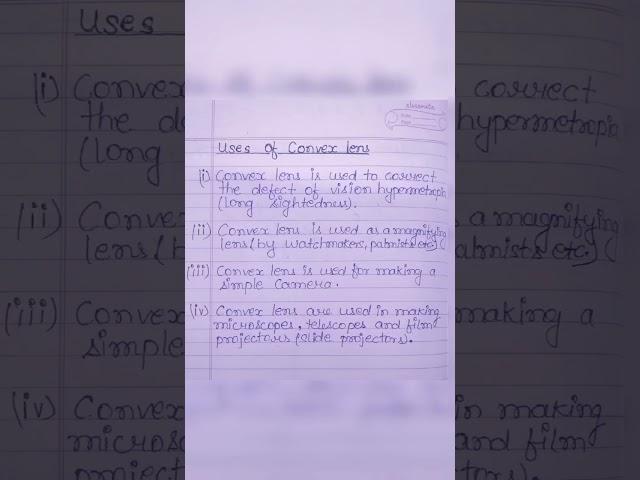 classmate
Date
Page
Uses Of Convex lens
(i) Convex lens is used to correct
the defect of vision hypermetropia
(long sightedness).
(ii) Convex lens is used as a magnifying
lens (by watchmakers, palmists etc)
(iii) Convex lens is used for making a
simple camera.
(iv) Convex lens are used in making
microscopes, telescopes and film
projectors (slide projectors).